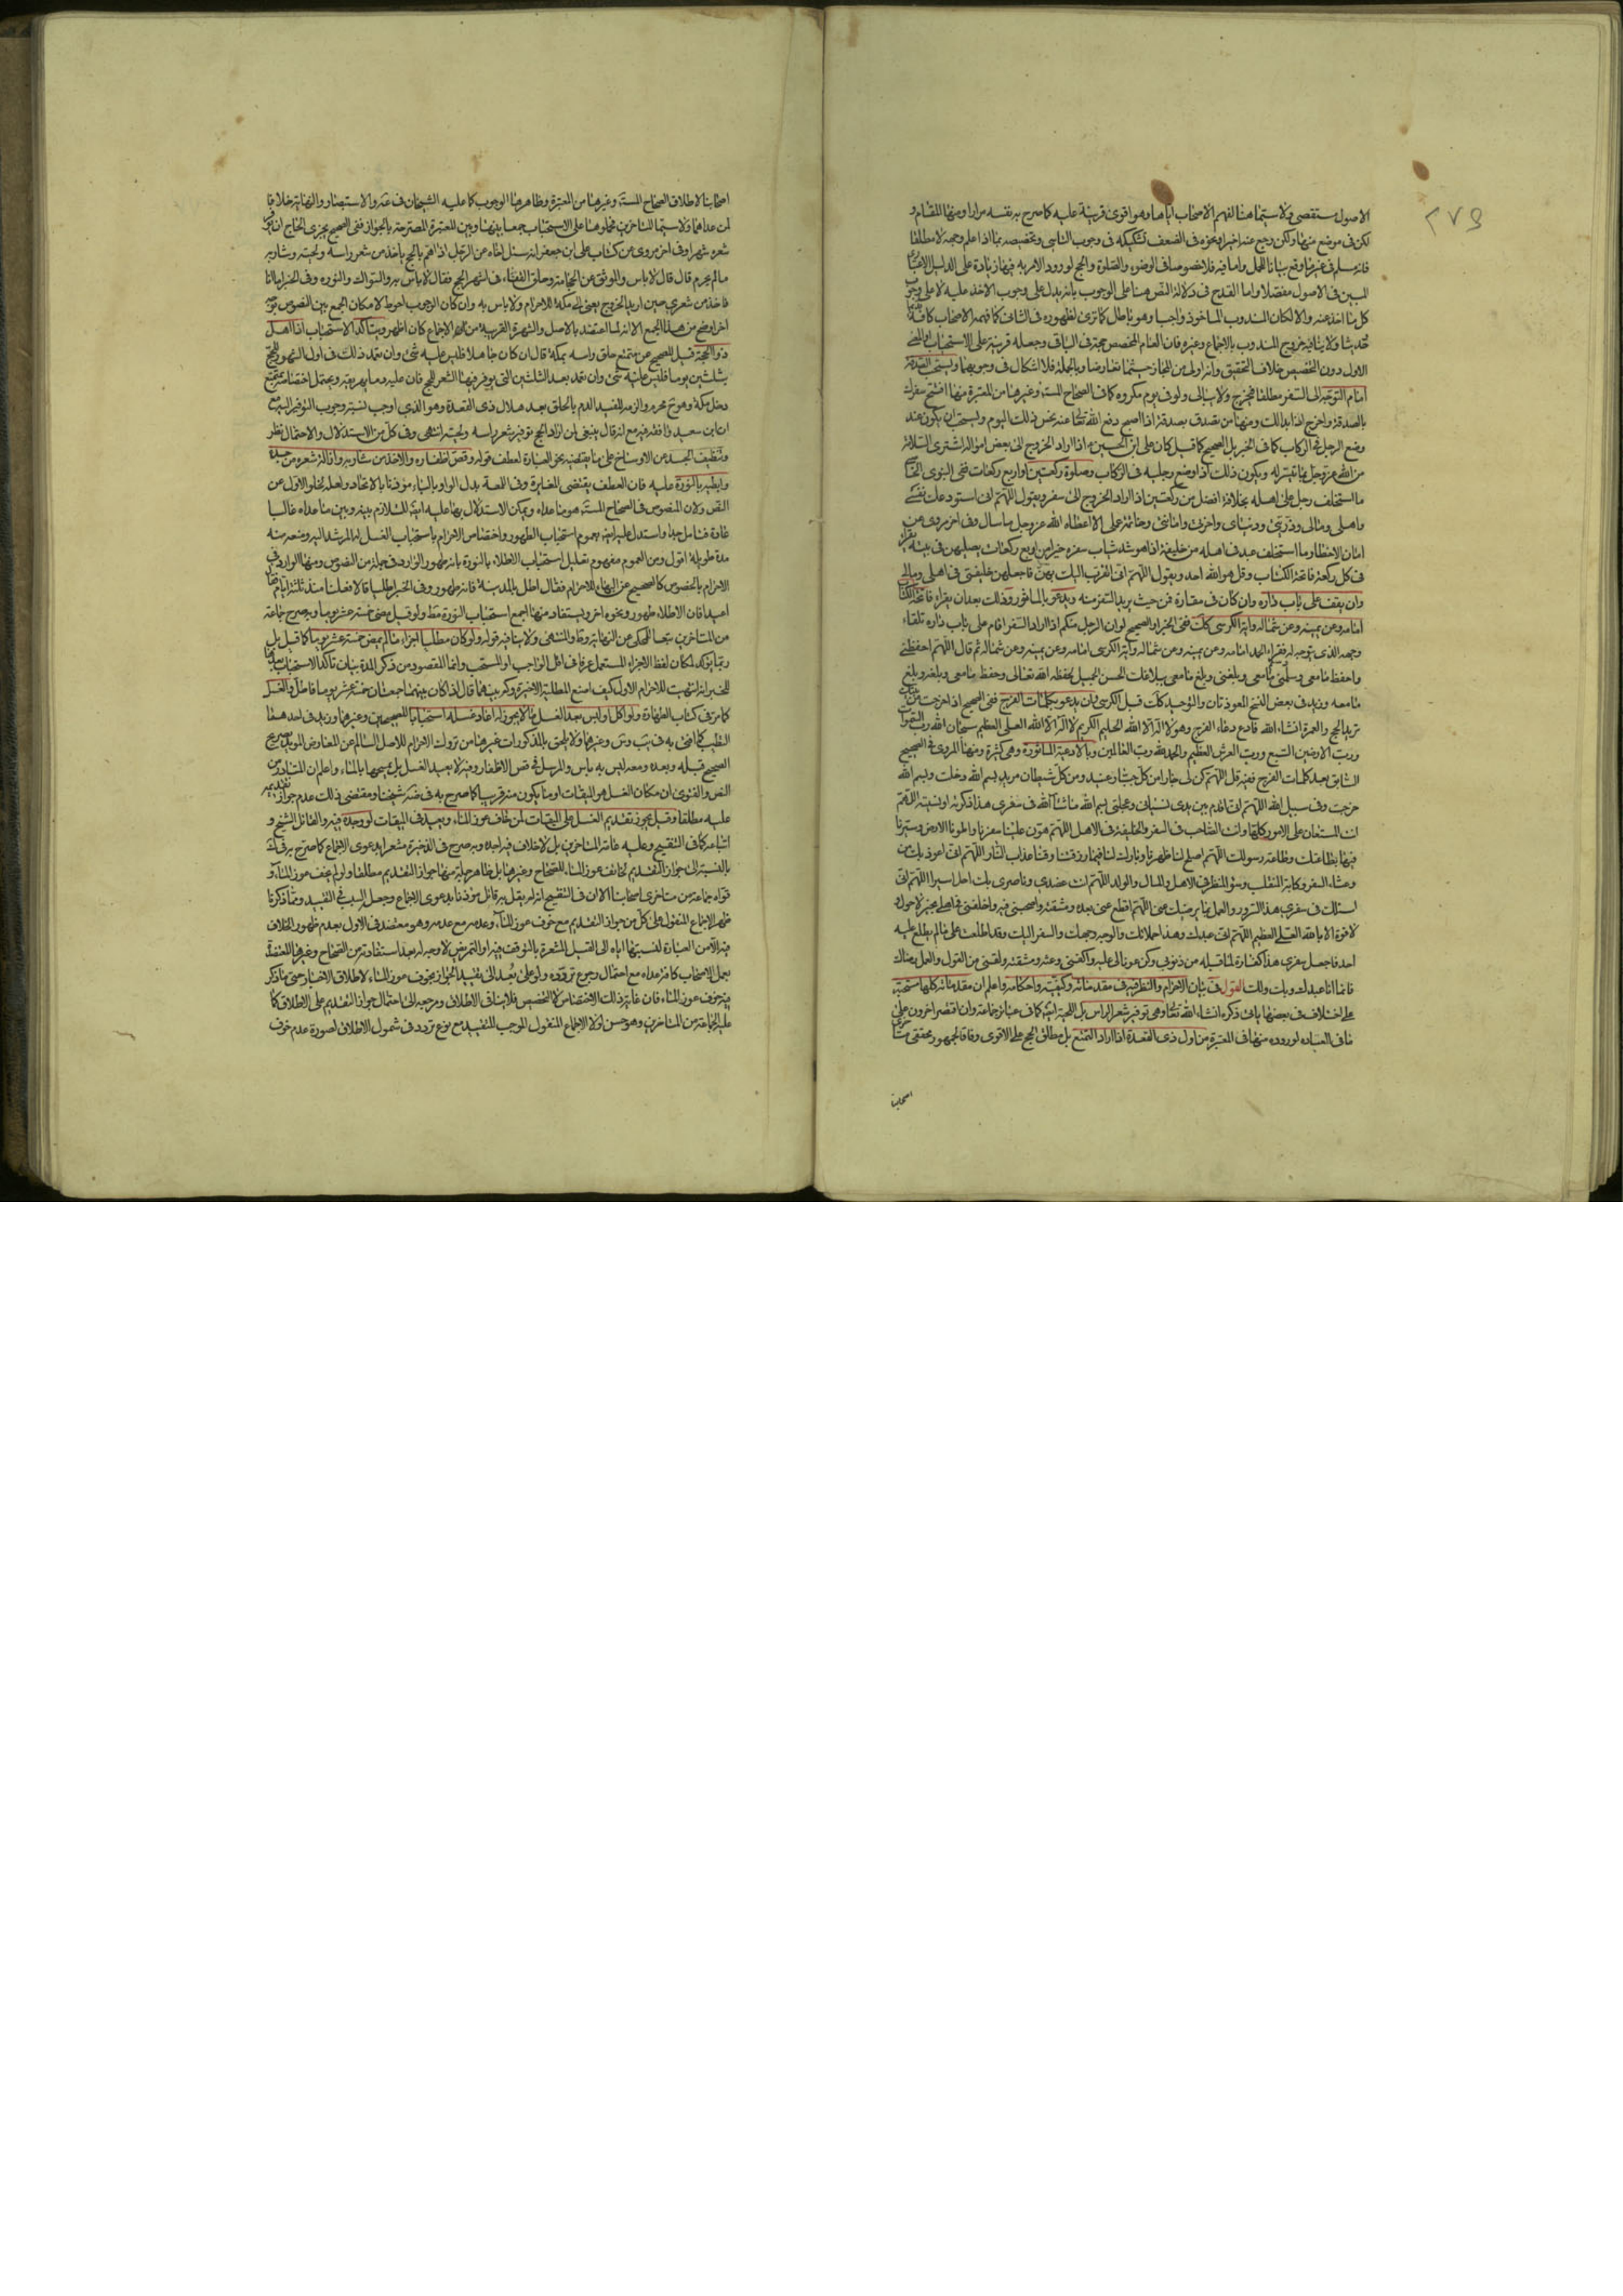 ٢٧٥
الاصول مستقصى ولا سيما هنا لفهم الاصحاب اياها وهو اقوى قرينة عليه كما صرح به نفسه مرارا ومنها المقام و
لكن في موضع منها ولكن رجع عنه اخيرا ونحوه في الضعف تشكيكه في وجوب التاسي وتخصيصه بما اذا علم وجهه لا مطلقا
المبين في الاصول مفصلا واما القدح في دلالة النص هنا على الوجوب بانه يدل على وجوب الاخذ عليه لا على وجوب
كل ما اخذ عنه والا لكان المندوب الماخوذ واجبا وهو باطل كما ترى لظهوره في الثاني كما فهمه الاصحاب كافة
ولا ينافيه خروج المندوب بالاجماع وغيره فان العام المخصص حجة في الباقي وجعله قرينة على الاستحباب
الاول دون التخصيص خلاف التحقيق وانه اولى من المجاز حيثما تعارضا وبالجملة فلا اشكال في وجوبهما ويستحب الصدقة
امام التوجه الى السفر مطلقا فيخرج ولا يبالي ولو في يوم مكروه كما في الصحاح المستفيضة وغيرها من المعتبرة منها افتتح سفرك
بالصدقة واخرج اذا بدا لك ومنها من تصدق بصدقة اذا اصبح دفع الله تعالى عنه نحس ذلك اليوم ويستحب ان يكون عند
وضع الرجل في الركاب كما في الخبر بل الصحيح كما قيل كان علي ابن الحسين ع اذا اراد الخروج الى بعض امواله اشترى السلامة
من الله عز وجل بما تيسر له ويكون ذلك اذا وضع رجليه في الركاب وصلوة ركعتين او اربع ركعات ففي النبوي
ما استخلف رجل على اهله بخلافة افضل من ركعتين اذا اراد الخروج الى سفر ويقول اللهم اني استودعك نفسي
واهلي ومالي وذريتي ودنياي واخرتي وامانتي وخاتمة عملي الا اعطاه الله عز وجل ما سال وفي اخر مروي عن
امان الاخطار وما استخلف عبد في اهله من خليفة اذا هو شد ثياب سفره خير من اربع ركعات يصليهن في بيته يقرأ
في كل ركعة فاتحة الكتاب وقل هو الله احد ويقول اللهم اني اتقرب اليك بهن فاجعلهن خليفتي في اهلي ومالي
وان يقف على باب داره وان كان في مفازة فمن حيث يريد السفر منه ويدعو بالماثور وذلك بعد ان يقرأ فاتحة الكتاب
امامه وعن يمينه وعن شماله واية الكرسي كك ففي الخبر او الصحيح لو ان الرجل منكم اذا اراد السفر اقام على باب داره تلقاء
وجهه الذي يتوجه له فقراء الحمد امامه وعن يمينه وعن شماله واية الكرسي امامه وعن يمينه وعن شماله ثم قال اللهم احفظني
واحفظ ما معي وسلمني وسلم ما معي وبلغني وبلغ ما معي ببلاغك الحسن الجميل لحفظه الله تعالى وحفظ ما معي وبلغه وبلغ
ما معه وزيد في بعض النسخ المعوذتان والتوحيد كك قبل الكرسي وان يدعو بكلمات الفرج ففي الصحيح اذا خرجت من بيتك
تريد الحج والعمرة انشاء الله فادع دعاء الفرج وهو لا اله الا الله الحليم الكريم لا اله الا الله العلي العظيم سبحان الله رب السموات
ورب الارضين السبع ورب العرش العظيم والحمد لله رب العالمين وبالادعية الماثورة وهي كثيرة ومنها المروي في الصحيح
السابق بعد كلمات الفرج ففيه قل اللهم كن لي جارا من كل جبار عنيد ومن كل شيطان مريد بسم الله دخلت وبسم الله
خرجت وفي سبيل الله اللهم اني اقدم بين يدي نسياني وعجلتي بسم الله ما شاء الله في سفري هذا ذكرته او نسيته اللهم
انت المستعان على الامور كلها وانت الصاحب في السفر والخليفة في الاهل اللهم هون علينا سفرنا واطو لنا الارض وسيرنا
فيها بطاعتك وطاعة رسولك اللهم اصلح لنا ظهرنا وبارك لنا فيما رزقتنا وقنا عذاب النار اللهم اني اعوذ بك من
وعثاء السفر وكابة المنقلب وسوء المنظر في الاهل والمال والولد اللهم انت عضدي وناصري بك احل وبك اسير اللهم اني
اسئلك في سفري هذا السرور والعمل بما يرضيك عني اللهم اقطع عني بعده ومشقته واصحبني فيه واخلفني في اهلي بخير لا حول و
لا قوة الا بالله العلي العظيم اللهم اني عبدك وهذا حملانك والوجه وجهك والسفر اليك وقد اطلعت على ما لم يطلع عليه
احد فاجعل سفري هذا كفارة لما قبله من ذنوبي وكن عونا لي عليه واكفني وعثه ومشقته ولقني من القول والعمل رضاك
فانما انا عبدك وبك ولك القول في بيان الاحرام والنظر فيه في مقدماته وكيفيته واحكامه واعلم ان مقدماته كلها مستحبة
على اختلاف في بعضها ياتي ذكره انشاء الله تعالى وهي توفير شعر الراس بل اللحية ايضا كما في عبائر جماعة وان اقتصر اخرون على
ما في العبارة لوروده منها في المعتبرة من اول ذي القعدة اذا اراد التمتع بل مطلق الحج على الاقوى وفاقا لجمهور محققي متاخري
اصحابنا
اصحابنا لاطلاق الصحاح المستفيضة وغيرها من المعتبرة وظاهرها الوجوب كما عليه الشيخان في عنه والاستبصار والنهاية خلافا
لمن عداهما ولا سيما المتاخرين فحملوها على الاستحباب جمعا بينها وبين المعتبرة المصرحة بالجواز ففي الصحيح يجزي الحاج ان يوفر
شعره شهرا وفي اخر مروي عن كتاب علي ابن جعفر انه سئل اخاه عن الرجل اذا هم بالحج ياخذ من شعر راسه ولحيته وشاربه
ما لم يحرم قال قال لا باس والموثق عن الحجامة وحلق القفاء في اشهر الحج فقال لا باس به والسواك والنورة وفي الخبر اما انا
فاخذ من شعري حين اريد الخروج يعني الى مكة للاحرام ولا باس به وان كان الوجوب احوط لامكان الجمع بين النصوص بوجه
اخر اوضح من هذا الجمع الا انه لما اعتضد بالاصل والشهرة القريبة من الاجماع كان اظهر ويتاكد الاستحباب اذا اهل
ذو الحجة قيل للصحيح عن متمتع حلق راسه بمكة قال ان كان جاهلا فليس عليه شئ وان تعمد ذلك في اول الشهور للحج
بثلثين يوما فليس عليه شئ وان تعمد بعد الثلثين التي يوفر فيها الشعر للحج فان عليه دما يهريقه ويحتمل اختصاصه بمتمتع
دخل مكة وهو محرم والزمه المفيد الدم بالحلق بعد هلال ذي القعدة وهو الذي اوجب نسبة وجوب التوفير اليه مع
ان ابن سعيد وافقه فيه مع انه قال ينبغي لمن اراد الحج توفير شعر راسه ولحيته انتهى وفي كل من الاستدلال والاحتمال نظر
وتنظيف الجسد عن الاوساخ على ما يقتضيه نحو العبارة لعطف قوله وقص اظفاره والاخذ من شاربه وازالة شعره من جسده
وابطيه بالنورة عليه فان العطف يقتضي المغايرة وفي اللمعة بدل الواو بالباء مؤذنا بالاتحاد ولعله لخلو الاول من
النص ولان المنصوص في الصحاح المستفيضة هو ما عداه ويمكن الاستدلال بها عليه ايضا للتلازم بينه وبين ما عداه غالبا
عادة فتامل جدا واستدل عليه ايضا بعموم استحباب الطهور واختصاص الاحرام باستحباب الغسل له المرشد اليه ومنعه منه
مدة طويلة اقول ومن العموم مفهوم تعليل استحباب الاطلاء بالنورة بانه طهور الوارد في جملة من النصوص ومنها الوارد في
الاحرام بالخصوص كالصحيح عن التهياء للاحرام فقال اطل بالمدينة فانه طهور وفي الخبر اطليا قالا فعلنا منذ ثلثة ايام فقال
اعيدا فان الاطلاء طهور ونحوه اخر ويستفاد منها اجمع استحباب النورة مط ولو قبل مضي خمسة عشر يوما وبه صرح جماعة
من المتاخرين تبعا للمحكي عن النهاية وط والمنتهى ولا ينافيه قوله ولو كان مطليا اجزاء ما لم يمض خمسة عشر يوما كما قيل بل
ربما يؤكد لمكان لفظ الاجزاء المستعمل عرفا في اقل الواجب او المستحب وانما المقصود من ذكر المدة بيان تاكد الاستحباب بعدها
للخبر اذا اتهيت للاحرام الاول كيف اصنع للطلية الاخيرة وكم بينهما قال اذا كان بينهما جمعتان خمسة عشر يوما فاطل والغسل
كما مر في كتاب الطهارة ولو اكل او لبس بعد الغسل ما لا يجوز له اعاد غسله استحبابا للصحيحين وغيرهما وزيد في احدهما
التطيب كما افتى به في يب وس وغيرهما ولا يلحق بالمذكورات غيرها من تروك الاحرام للاصل السالم عن المعارض المؤيد بصريح
الصحيح قبله وبعده ومعه ليس به باس والمرسل في قص الاظفار وفيه لا يعيد الغسل بل يمسحها بالماء واعلم ان المتبادر من
النص والفتوى ان مكان الغسل هو الميقات او ما يكون منه قريبا كما صرح به في ضه شيخنا ومقتضى ذلك عدم جواز تقديمه
عليه مطلقا وقيل يجوز تقديم الغسل على الميقات لمن خاف عوز الماء ويعيد في الميقات لو وجده فيه والقائل الشيخ و
اتباعه كما في التنقيح وعليه عامة المتاخرين بل لا خلاف فيه اجده وبه صرح في الذخيرة مشعرا بدعوى الاجماع كما صرح به في ك
بالنسبة الى جواز التقديم لخائف عوز الماء للصحاح وغيرها بل ظاهر جملة منها جواز التقديم مطلقا ولو لم يخف عوز الماء و
قواه جماعة من متاخري اصحابنا الا ان في التنقيح انه لم يقل به قائل مؤذنا بدعوى الاجماع وجعل السبب في التقييد ومما ذكرنا
ظهر الاجماع المنقول على كل من جواز التقديم مع خوف عوز الماء وعدمه مع عدمه وهو معتضد في الاول بعدم ظهور الخلاف
فيه الا من العبارة لنسبتها اياه الى القيل المشعرة بالتوقف فيه او التمريض لا وجه له بعد استفادته من الصحاح وغيرها المعتضدة
بعمل الاصحاب كافة عداه مع احتمال رجوع تردده ولو على بعد الى تقييد الجواز بخوف عوز الماء لاطلاق الاخبار حتى ما ذكر
فيه خوف عوز الماء فان غايته ذلك الاختصاص لا التخصيص فلا ينافي الاطلاق ومرجعه الى احتمال جواز التقديم على الاطلاق كما
عليه الجماعة من المتاخرين وهو حسن لولا الاجماع المنقول الموجب للتقييد مع نوع تردد في شمول الاطلاق لصورة عدم خوف